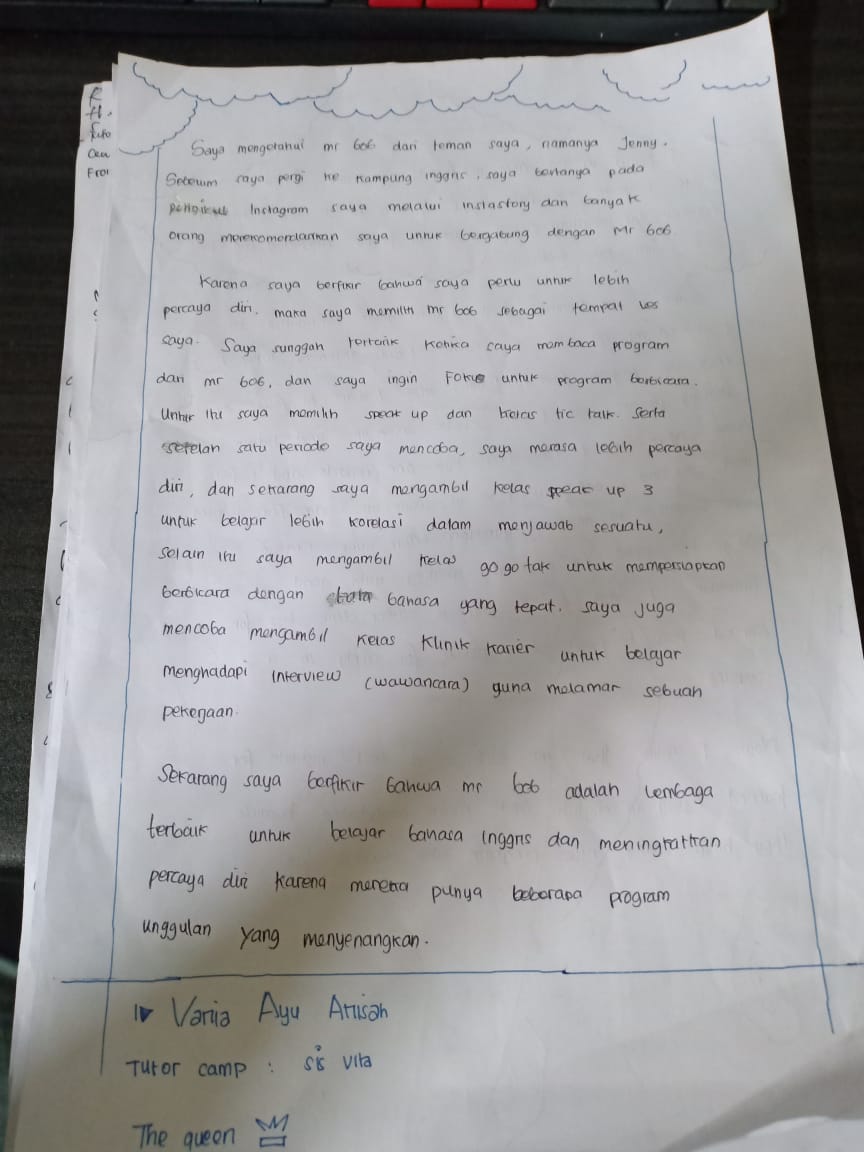 Saya mengetahui mr bob dari teman saya, namanya Jenny.
Sebelum saya pergi ke kampung inggris, saya bertanya pada
pengikut Instagram saya melalui instastory dan banyak
orang merekomendasikan saya untuk bergabung dengan Mr bob
Karena saya berfikir bahwa saya perlu untuk lebih
percaya diri, maka saya memilih mr bob sebagai tempat les
saya. Saya sungguh tertarik ketika saya membaca program
dari mr bob, dan saya ingin Fokus untuk program berbicara.
Untuk itu saya memilih speak up dan kelas tic talk. Serta
setelah satu periode saya mencoba, saya merasa lebih percaya
diri, dan sekarang saya mengambil kelas speak up 3
untuk belajar lebih korelasi dalam menjawab sesuatu,
selain itu saya mengambil kelas go go tak untuk mempersiapkan
berbicara dengan bahasa yang tepat. saya juga
mencoba mengambil kelas Klinik karier untuk belajar
menghadapi interview (wawancara) guna melamar sebuah
pekerjaan.
Sekarang saya berfikir bahwa mr bob adalah lembaga
terbaik untuk belajar bahasa inggris dan meningkatkan
percaya diri karena mereka punya beberapa program
unggulan yang menyenangkan.
Vania Ayu Anisah
Tutor camp : sis vita
The queen